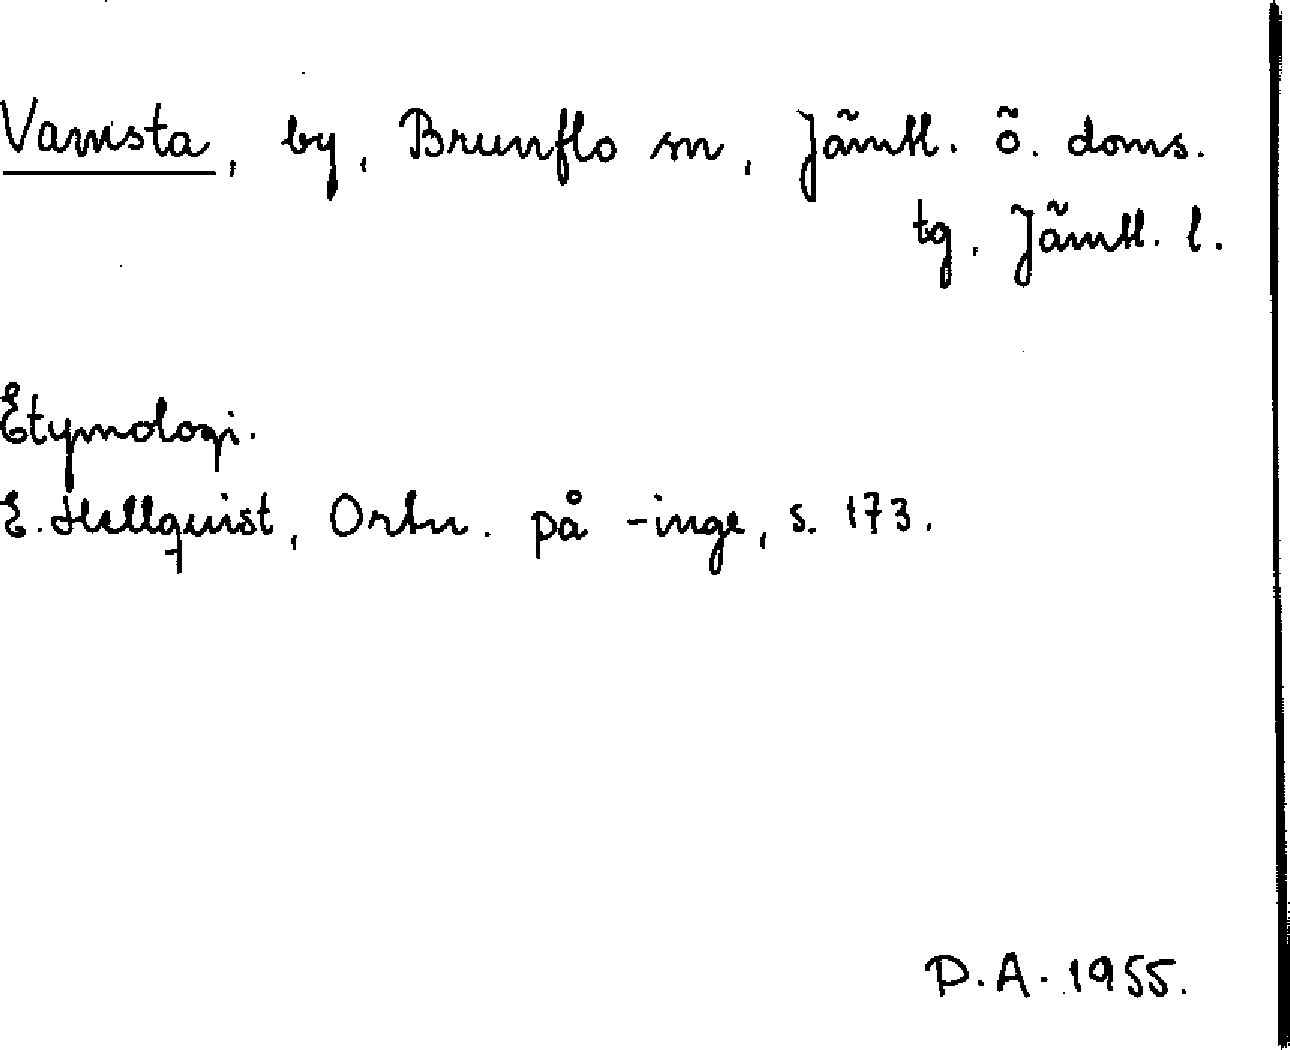 Vamsta, by, Brunflo sn, Jämtl. ö. doms.
tg, Jämtl. l.
Etymologi.
E. Hellquist, Ortn. på -inge, s. 173.
D.A. 1955.